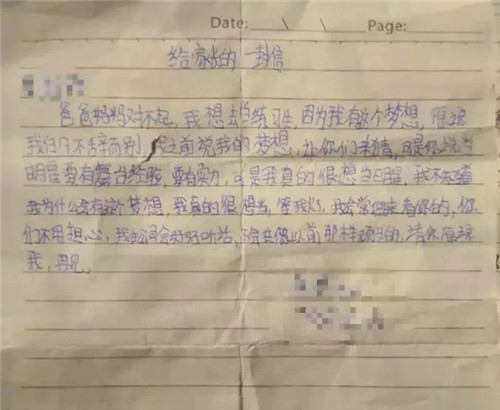 Date: \ \ Page:
给家长的一封信
爸爸妈妈对不起，我想去当练习生，因为我有这个梦想，原谅
我的不辞而别，我之前说我的梦想，让你们来猜，可是你说当
明星要有舞台经验，要有实力，可是我真的很想当明星，我不知道
我为什么会有这个梦想，我真的很想当，等我火了，我会常回来看你的，你
们不用担心，我会好好听话，不会在像以前那样顽的，请你原谅
我，再见。